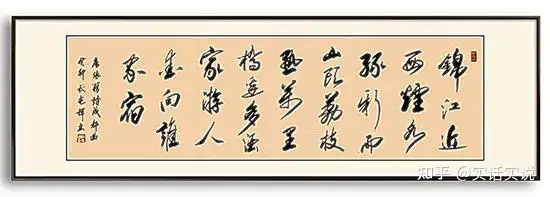 錦江近
西煙水
綠新雨
山頭荔枝
熟萬里
橋邊多酒
家游人
愛向誰
家宿
唐張籍詩成都曲
癸卯秋
知乎 @实话实说